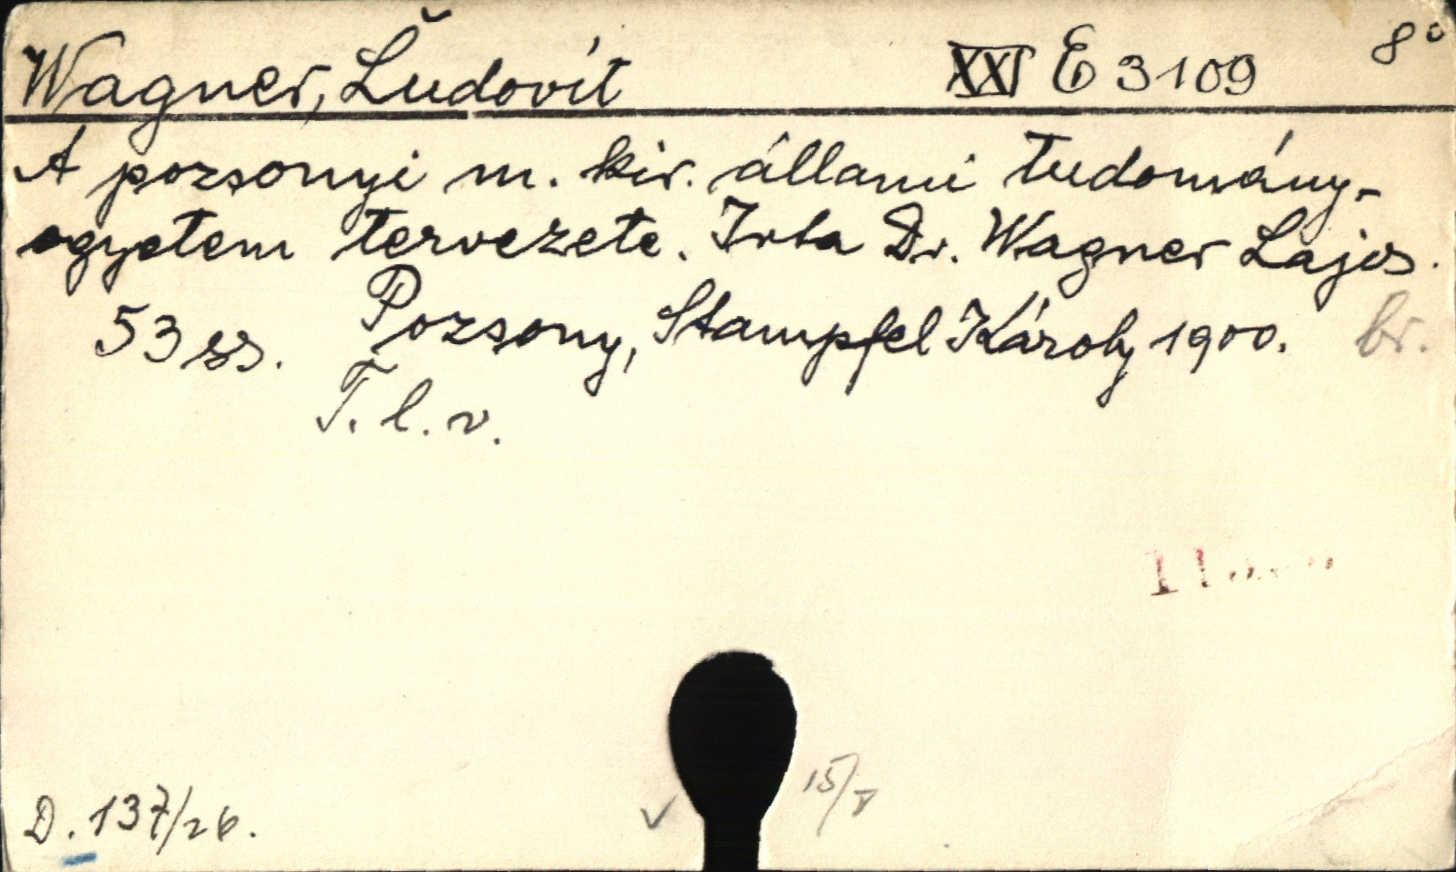 Wagner, Ľudovít XXI E 3109 8°
A pozsonyi m. kir. állami tudomány-
egyetem tervezete. Irta Dr. Wagner Lajos.
53 ss. Pozsony, Stampfel Károly 1900. br.
T. l. v.
15/V
D. 137/26.